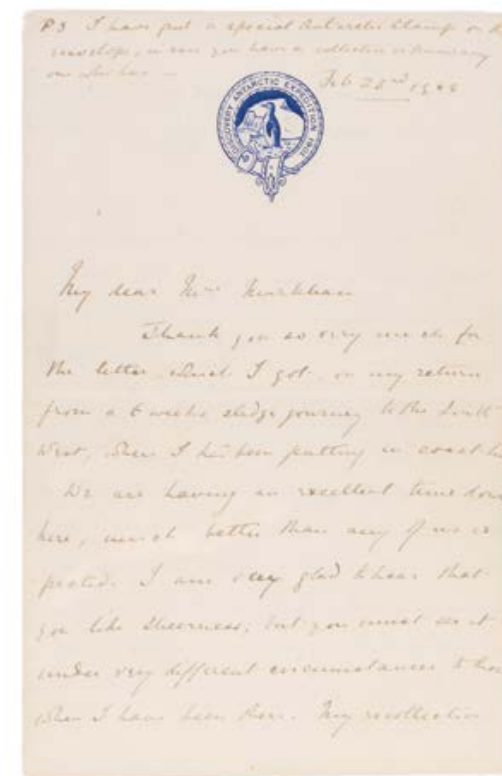 PS I have put a special Antarctic Stamp on the
envelope, in case you have a collection or know any
one who has —
Feb 22nd
DISCOVERY ANTARCTIC EXPEDITION 1901
My dear Mrs Markham
Thank you so very much for
the letter which I got on my return
from a 6 weeks sledge journey to the South
West, where I had been putting in coast
We are having an excellent time down
here, much better than any of us ex
pected. I am very glad to hear that
you like Sheerness, but you must see it
under very different circumstances to those
when I have been there. My recollection